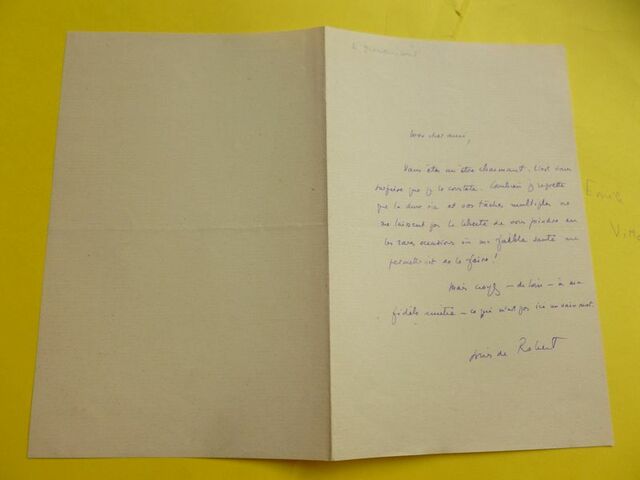 Mon cher ami,
Vous êtes un être charmant. C'est sans
surprise que je le constate. Combien je regrette
que la dure vie et vos tâches multiples ne
me laissent pas la liberté de vous joindre en
les rares occasions où ma faible santé me
permettrait de le faire !
Mais croyez – de loin – à ma
fidèle amitié – ce qui n'est pas ici un vain mot.
Louis de Robert